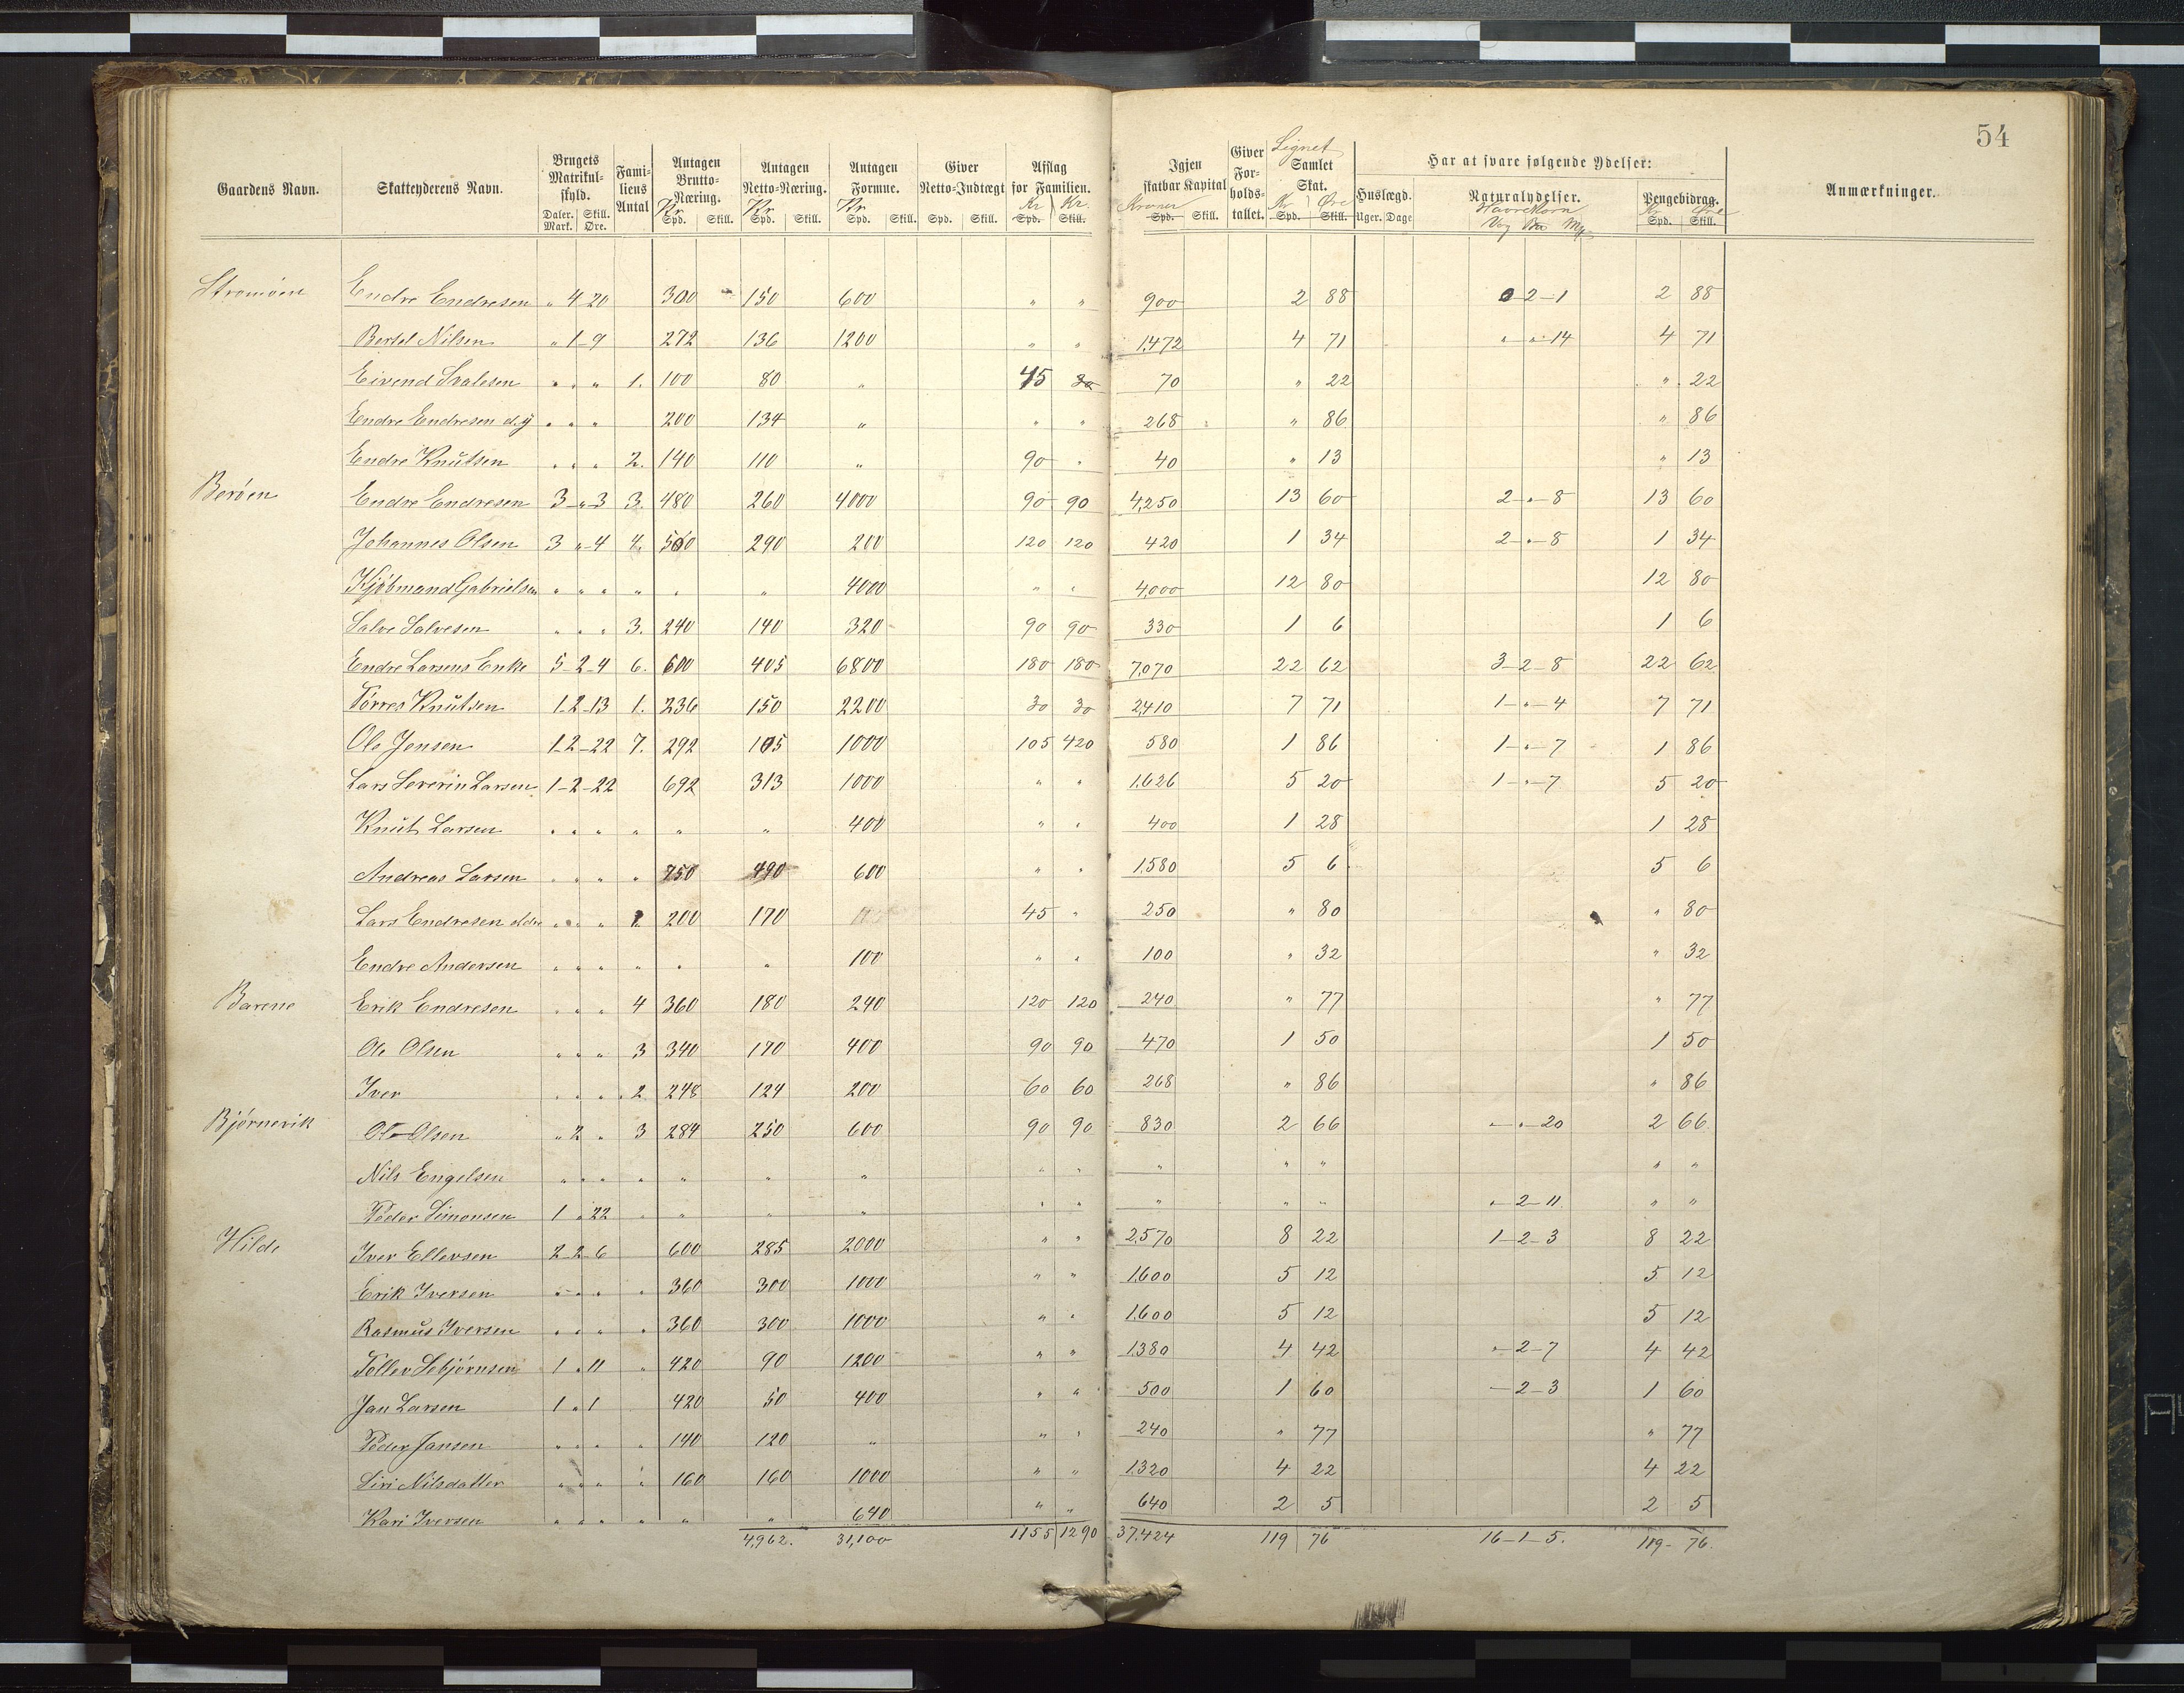 54
Gaardens Navn. Skatteyderens Navn. Brugets Matrikulskyld. Familiens Antal Antagen Brutto-Næring. Antagen Netto-Næring. Antagen Formue. Giver Netto-Indtægt Afslag for Familien. Igjen skatbar Kapital Giver Forholdstallet. Lignet Samlet Skat. Har at svare følgende Ydelser: Anmærkninger.
Huslægd. Naturalydelser. Pengebidrag.
Daler. Skill. Mark. Øre. Kr Spd. Skill. Kr Spd. Skill. Kr Spd. Skill. Spd. Skill. Kr Spd. Kr. Skill. Kroner Spd. Skill. Kr Spd. Øre Skill. Uger. Dage Havrekorn Vog Mk Kr Spd. Øre Skill.
Strømøen Endre Endresen " 4 20 300 150 600 " " 900 2 88 0-2-1 2 88
Bertel Nilsen " 1-9 272 136 1200 " " 1,472 4 71 " " 14 4 71
Eivend Svalesen " " " 1. 100 80 " 45 30 70 " 22 " 22
Endre Endresen d.y " " " 200 134 " " " 268 " 86 " 86
Endre Knutsen " " " 2. 140 110 " 90 " 40 " 13 " 13
Berøen Endre Endresen 3 " 3 3. 480 260 4000 90 90 4,250 13 60 2 - " - 8 13 60
Johannes Olsen 3 " 4 4. 560 290 200 120 120 420 1 34 2 - " - 8 1 34
Kjøbmand Gabrielsen " " " " " " 4000 " " 4,000 12 80 12 80
Salve Salvesen " " " 3. 240 140 320 90 90 330 1 6 1 6
Endre Larsens Enke 5-2-4 6. 600 405 6800 180 180 7,070 22 62 3-2-8 22 62
Tørres Knutsen 1-2-13 1. 236 150 2200 30 30 2,410 7 71 1 - " - 4 7 71
Ole Jensen 1-2-22 7. 292 105 1000 105 420 580 1 86 1 - " - 7 1 86
Lars Severin Larsen 1-2-22 692 313 1000 " " 1,626 5 20 1 - " - 7 5 20
Knut Larsen " " " " " " 400 " " 400 1 28 1 28
Andreas Larsen " " " " 750 490 600 " " 1,580 5 6 5 6
Lars Endresen eldre " " " 1. 200 170 45 " 250 " 80 " 80
Endre Andersen " " " " " " 100 " " 100 " 32 " 32
Barene Erik Endresen " " " 4 360 180 240 120 120 240 " 77 " 77
Ole Olsen " " " 3 340 170 400 90 90 470 1 50 1 50
Iver " " " 2 248 124 200 60 60 268 " 86 " 86
Bjørnevik Ole Olsen " 2 " 3 284 250 600 90 90 830 2 66 " - " - 20 2 66
Nils Engelsen " " " " " " " " " " " " " "
Peder Simonsen 1 " 22 " " " " " " " " " " - 2 - 11 " "
Hilde Iver Ellevsen 2-2-6 600 285 2000 " " 2,570 8 22 1-2-3 8 22
Erik Iversen " " " " 360 300 1000 " " 1,600 5 12 5 12
Rasmus Iversen " " " " 360 300 1000 " " 1,600 5 12 5 12
Tollev Sebjørnsen 1 " 11 " 420 90 1200 " " 1380 4 42 " - 2 - 7 4 42
Jan Larsen 1 " 1 420 50 400 " " 500 1 60 - 2 - 3 1 60
Peder Jansen " " " " 140 120 " " " 240 " 77 " 77
Siri Nilsdatter " " " " 160 160 1000 " " 1320 4 22 4 22
Kari Iversen " " " " " " 640 " " 640 2 5 2 5
4,962. 31,100 1155 1290 37,424 119 76 16-1-5. 119- 76.